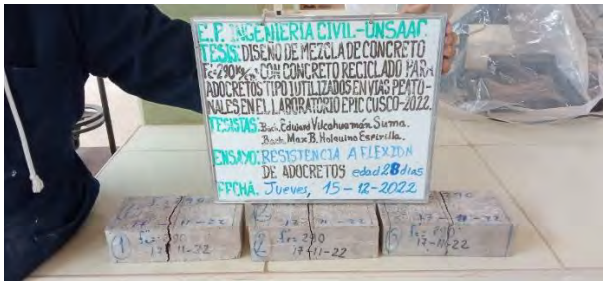 E.P. INGENIERÍA CIVIL-UNSAAC
TESIS: DISEÑO DE MEZCLA DE CONCRETO
CON CONCRETO RECICLADO PARA
ADOCRETOS TIPO I UTILIZADOS EN VIAS PEATO-
NALES EN EL LABORATORIO EPIC CUSCO-2022.
TESISTAS: Bach. Eduard Vilcahuamán Suma.
Bach. Max B. Holguino Espirilla.
ENSAYO: RESISTENCIA A FLEXION
DE ADOCRETOS edad 28 dias
FECHA: Jueves, 15-12-2022
1
17-11-22
2
290
17-11-22
17-11-22